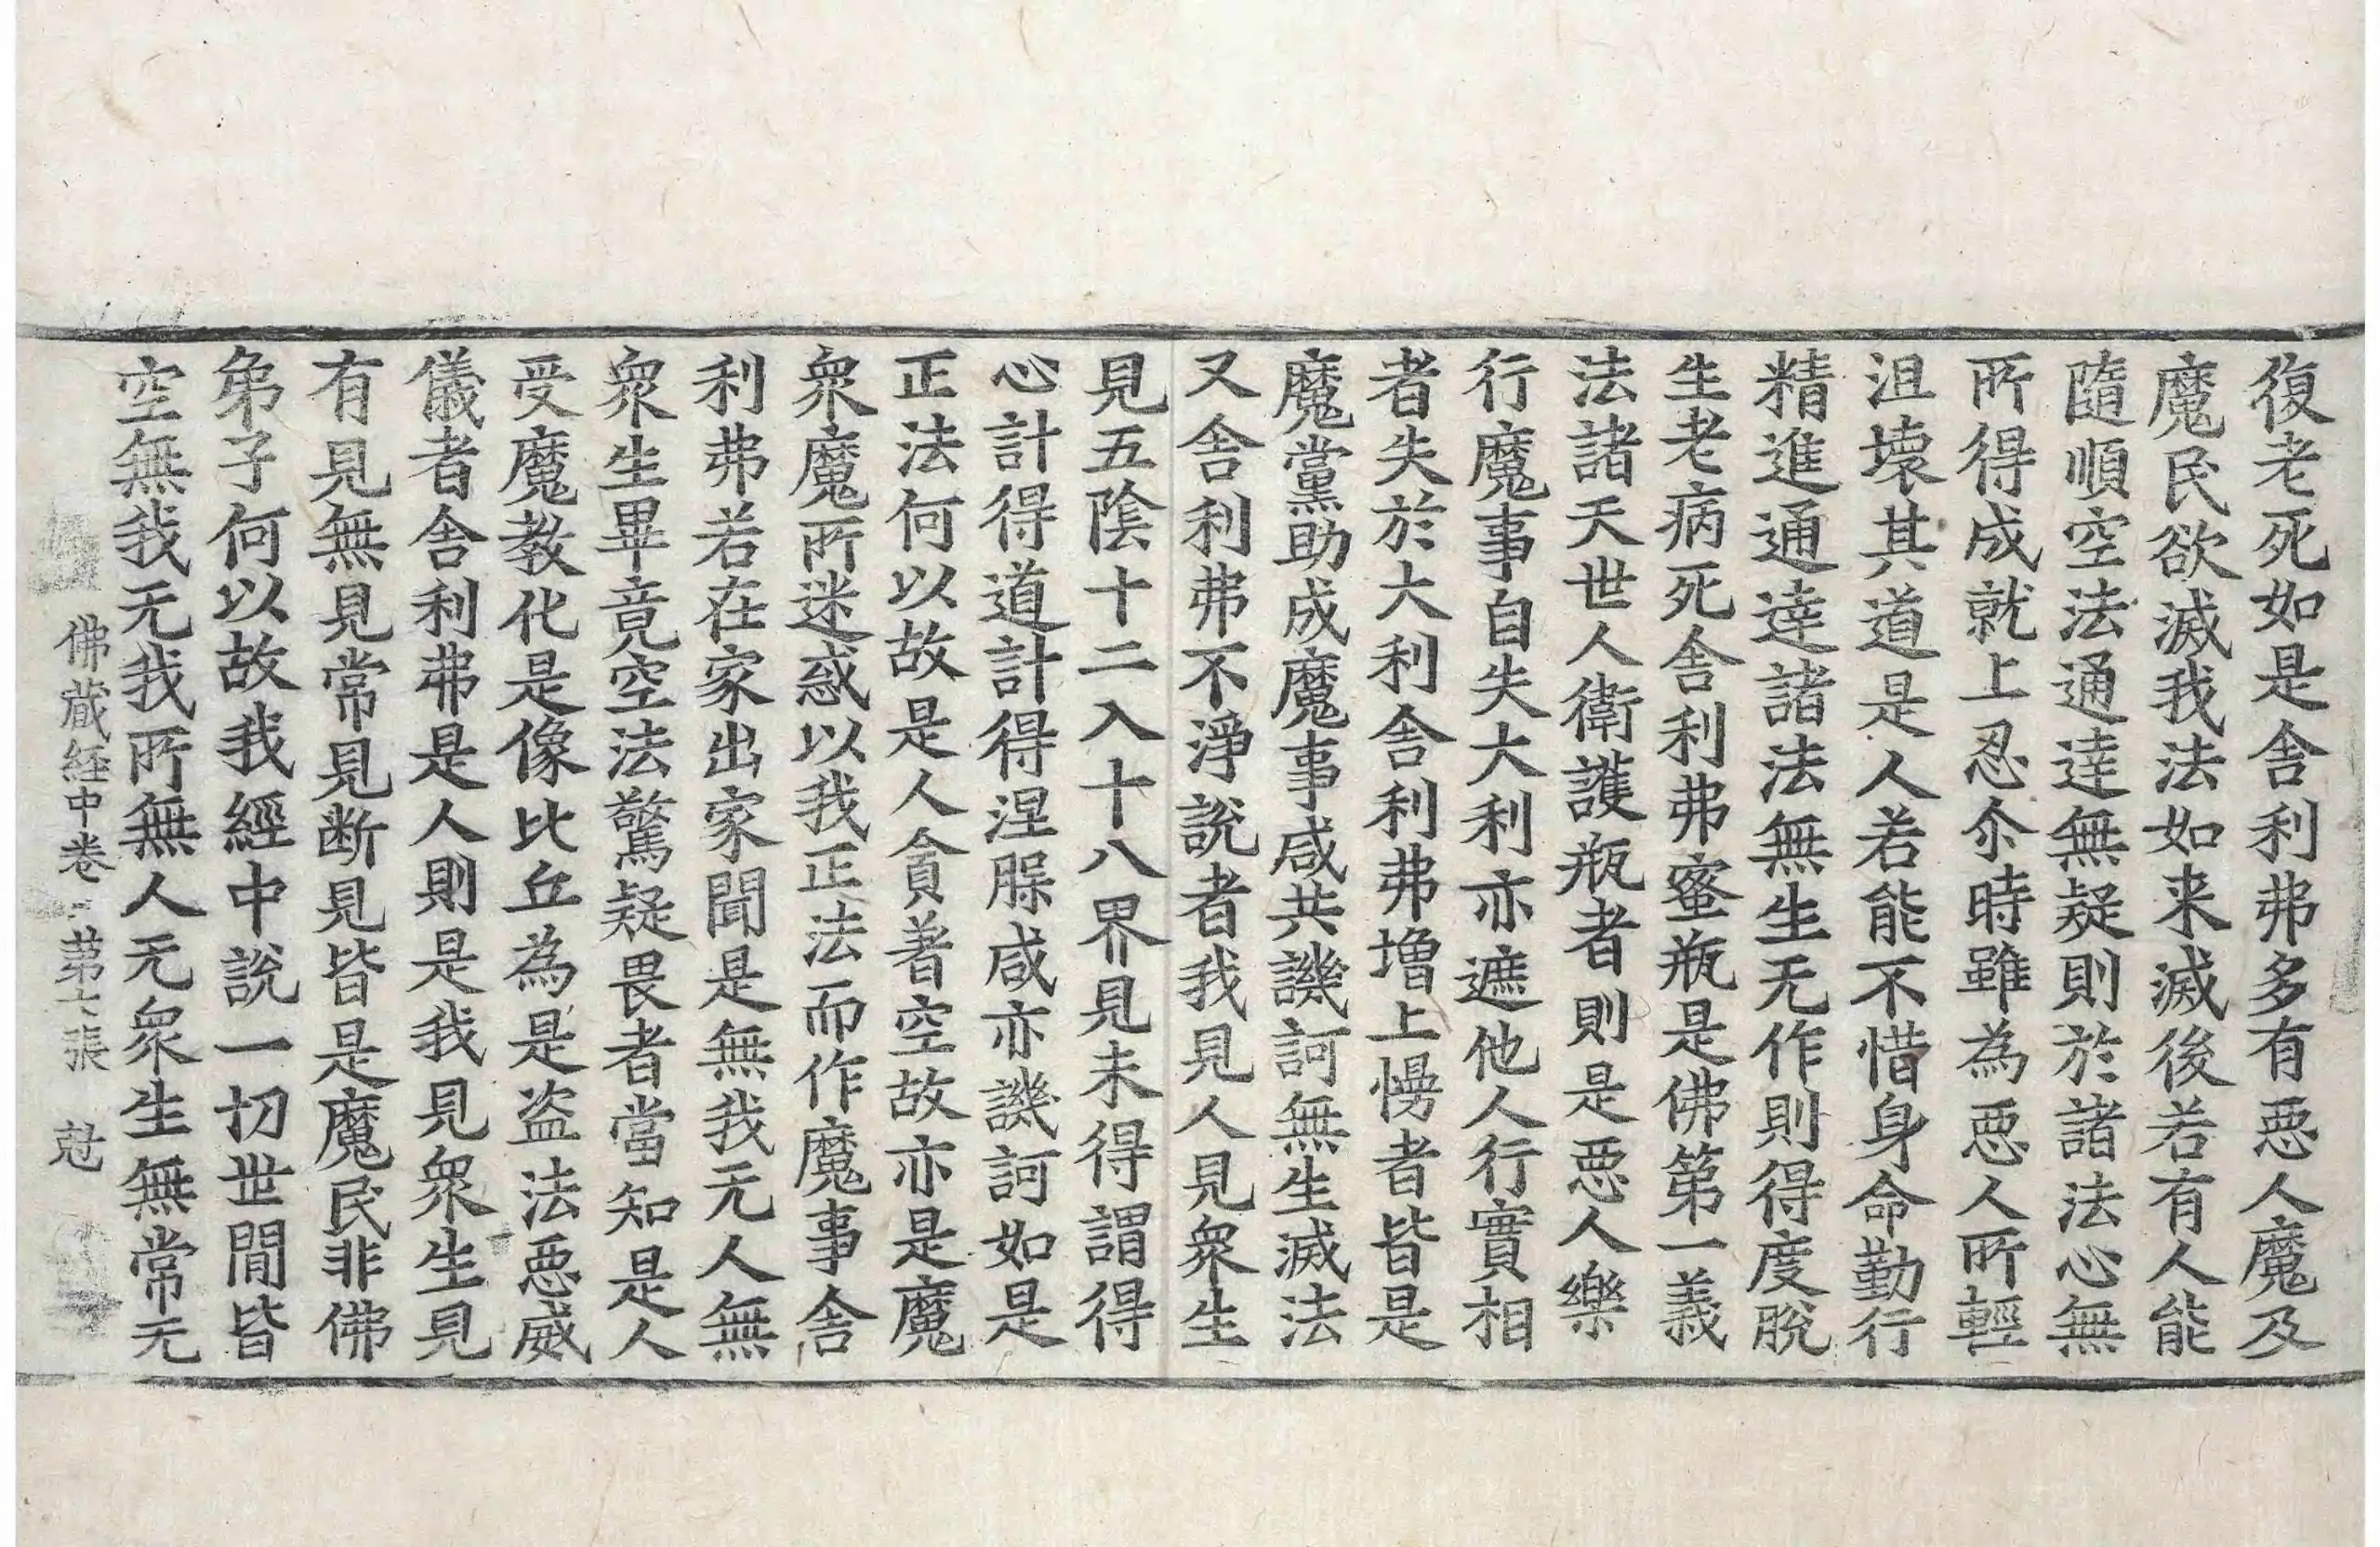 復老死如是舍利弗多有惡人魔及
魔民欲滅我法如来滅後若有人能
隨順空法通達無疑則於諸法心無
所得成就上忍尒時雖為惡人所輕
沮壞其道是人若能不惜身命勤行
精進通達諸法無生无作則得度脫
生老病死舍利弗蜜瓶是佛第一義
法諸天世人衛護瓶者則是惡人樂
行魔事自失大利亦遮他人行實相
者失於大利舍利弗增上慢者皆是
魔黨助成魔事咸共譏訶無生滅法
又舍利弗不淨說者我見人見衆生
見五陰十二入十八界見未得謂得
心計得道計得涅槃咸亦譏訶如是
正法何以故是人貪著空故亦是魔
衆魔所迷惑以我正法而作魔事舍
利弗若在家出家聞是無我无人無
衆生畢竟空法驚疑畏者當知是人
受魔教化是像比丘為是盗法惡威
儀者舍利弗是人則是我見衆生見
有見無見常見断見皆是魔民非佛
弟子何以故我經中說一切世間皆
空無我无我所無人无衆生無常无
佛蔵経中卷 第七張